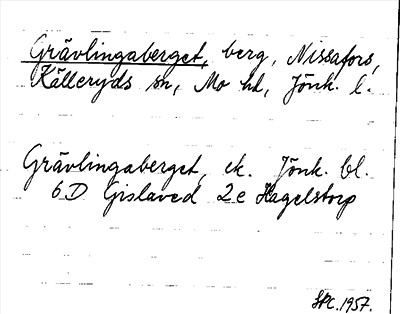 Grävlingaberget, berg, Nissafors,
Källeryds sn, Mo hd, Jönk. l.
Grävlingaberget, ek. Jönk. bl.
6D Gislaved 2e Hagelstorp
SPC. 1957.